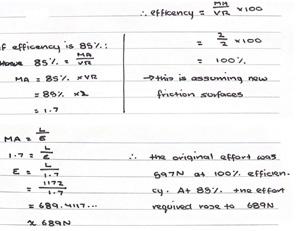 ∴ efficency = MA/VR × 100
= 2/2 × 100
= 100%
→ this is assuming new
friction surfaces
f efficency is 85%:
85% = MA/VR
MA = 85% × VR
= 85% × 2
= 1.7
MA = L/E
1.7 = L/E
E = L/1.7
= 1172/1.7
= 689.4117...
≈ 689N
∴ the original effort was
597N at 100% efficien-
cy. At 85% the effort
required rose to 689N